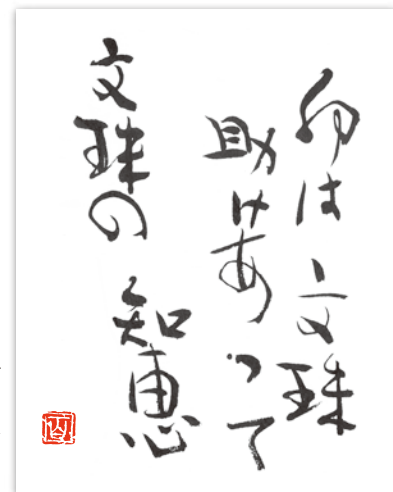 卯は 文珠
助けあって
文珠の 知恵